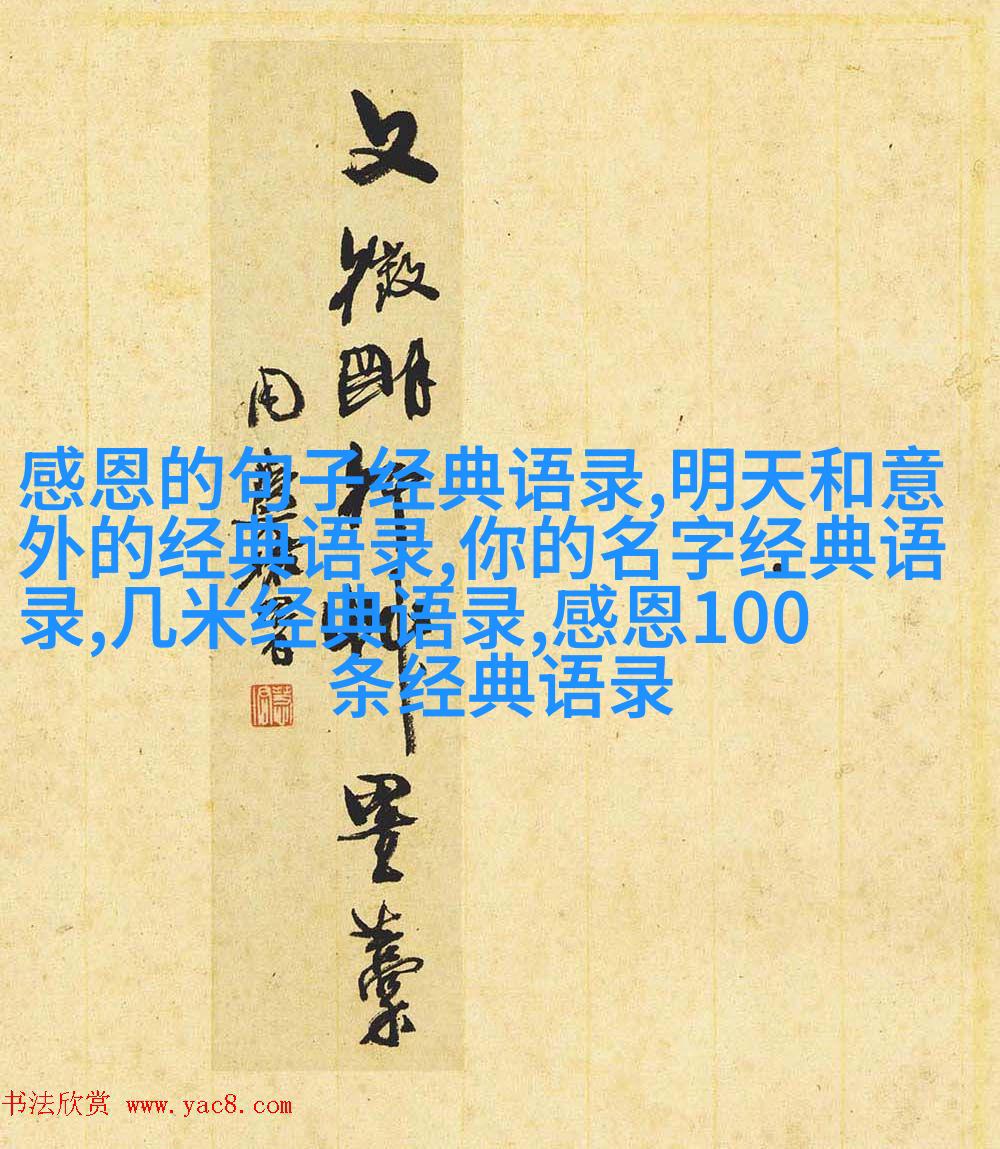 文徵明 墨藁
感恩的句子经典语录,明天和意
外的经典语录,你的名字经典语
录,几米经典语录,感恩100
条经典语录
书法欣赏 www.yac8.com